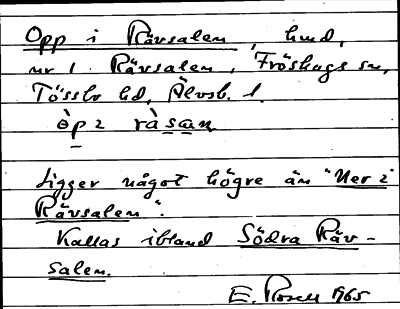 Opp i Rävsalen, hmd,
nr 1 Rävsalen, Fröskogs sn,
Tössbo hd, Älvsb. l.
òp i ràsan
Ligger något högre än "Ner i
Rävsalen".
Kallas ibland Södra Räv-
salen.
E. Rosell 1965